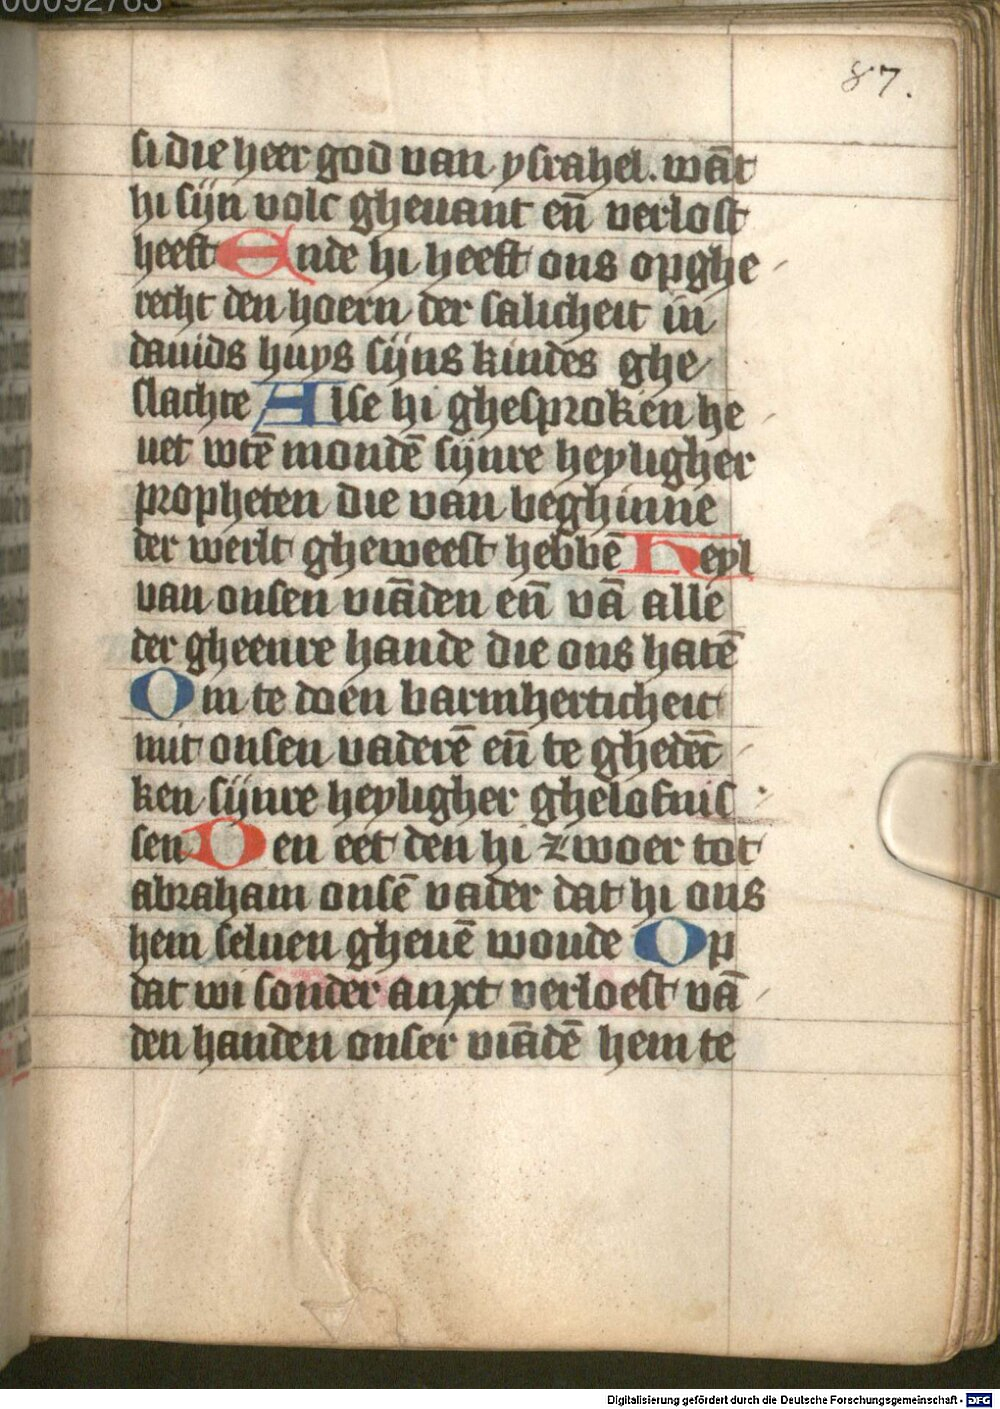 00092763
87.
si die heer god van ysrahel. wāt
hi sijn volc gheuant eñ verlost
heeft Ende hi heeft ons opghe
recht den hoern der salicheit in
dauids huys sijns kindes ghe
slachte Alse hi ghesproken he
uet wtē mondē sijnre heyligher
propheten die van beghinne
der werlt gheweest hebbē Heyl
van onsen viāden eñ vā alle
der gheenre hande die ons hatē
Om te doen barmherticheit
mit onsen vaderē eñ te ghedēc
ken sijnre heyligher ghelofnis
sen Den eet den hi zwoer tot
abraham onsē vader dat hi ons
hem seluen gheuē woude Op
dat wi sonder anxt verloest vā
den handen onser viādē hem te
Digitalisierung gefördert durch die Deutsche Forschungsgemeinschaft - DFG